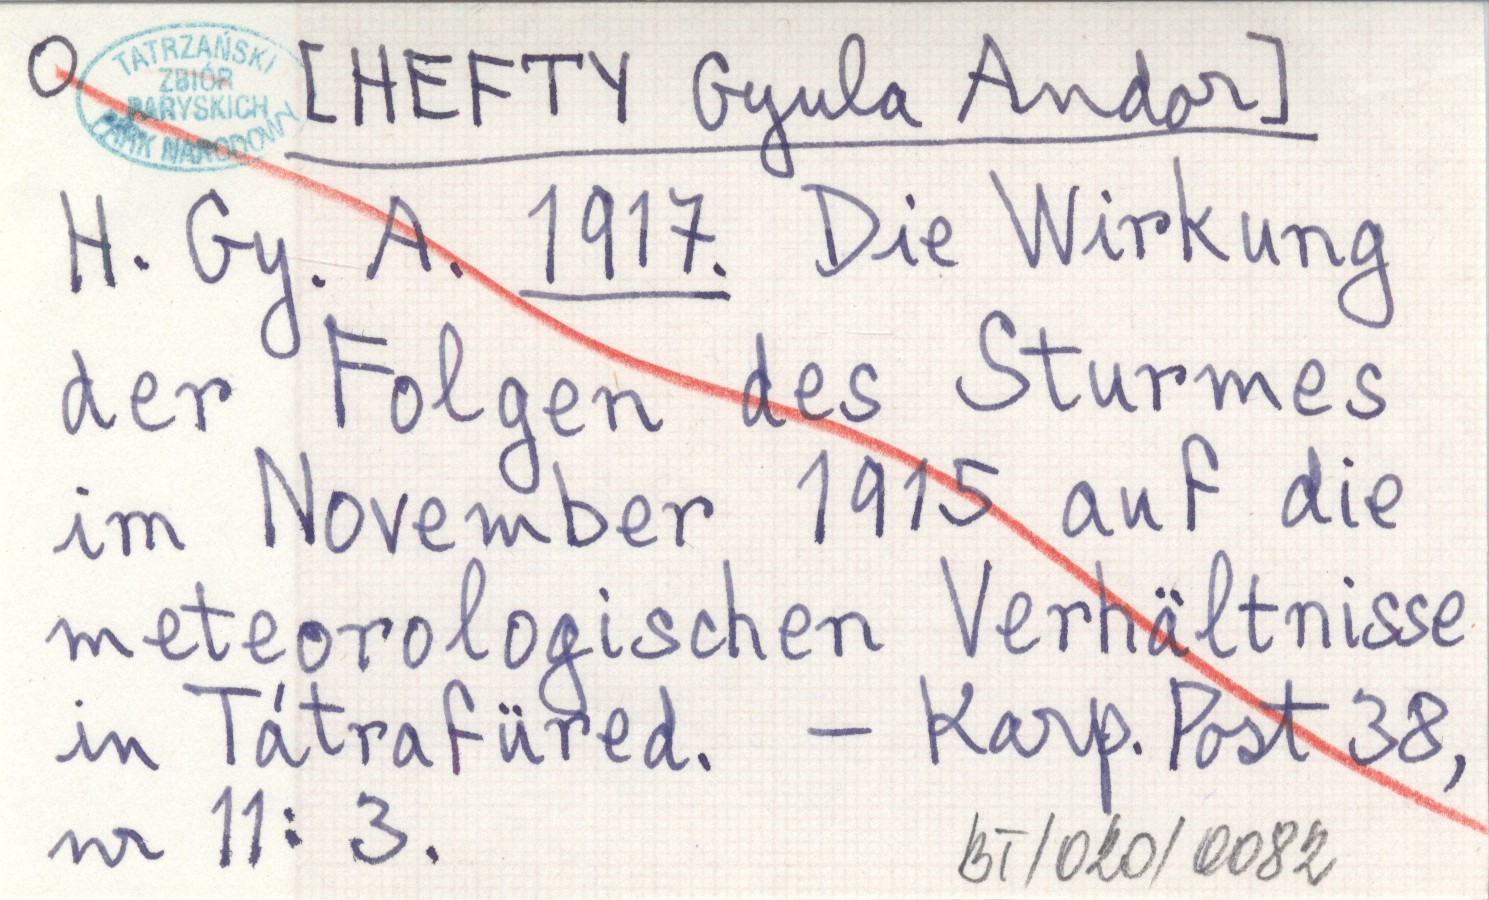 O
TATRZAŃSKI
ZBIÓR
PARYSKICH
PARK NARODOWY
[HEFTY Gyula Andor]
H. Gy. A. 1917. Die Wirkung
der Folgen des Sturmes
im November 1915 auf die
meteorologischen Verhältnisse
in Tátrafüred. – Karp. Post 38,
nr 11: 3.
BT/020/0082